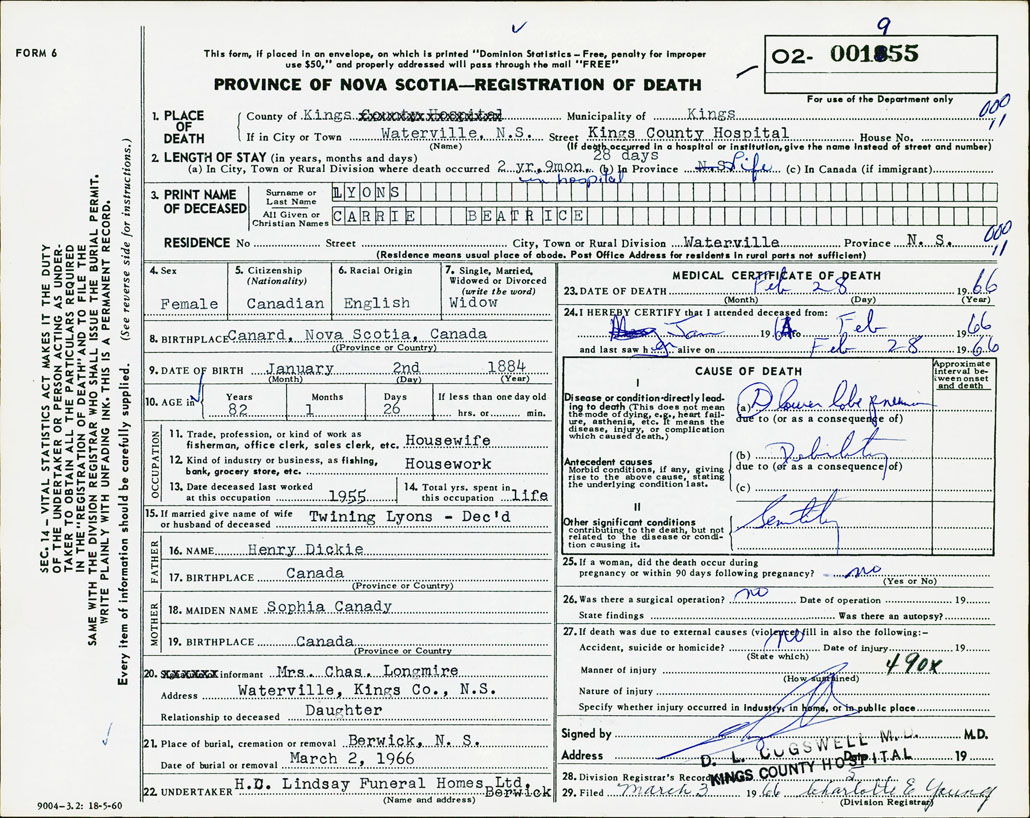 FORM 6
This form, if placed in an envelope, on which is printed "Dominion Statistics – Free, penalty for improper
use $50," and properly addressed will pass through the mail "FREE"
PROVINCE OF NOVA SCOTIA—REGISTRATION OF DEATH
9
O2- 001855
For use of the Department only
000
11
1. PLACE OF DEATH
County of Kings County Hospital Municipality of Kings
If in City or Town Waterville, N.S. Street Kings County Hospital House No.
(Name) (If death occurred in a hospital or institution, give the name instead of street and number)
2. LENGTH OF STAY (in years, months and days) 28 days
(a) In City, Town or Rural Division where death occurred 2 yr, 9mon. (b) In Province N.S. Life (c) In Canada (if immigrant)
in hospital
3. PRINT NAME OF DECEASED
Surname or Last Name LYONS
All Given or Christian Names CARRIE BEATRICE
RESIDENCE No Street City, Town or Rural Division Waterville Province N. S.
000
11
(Residence means usual place of abode. Post Office Address for residents in rural parts not sufficient)
4. Sex Female
5. Citizenship (Nationality) Canadian
6. Racial Origin English
7. Single, Married, Widowed or Divorced (write the word) Widow
8. BIRTHPLACE Canard, Nova Scotia, Canada
(Province or Country)
9. DATE OF BIRTH January 2nd 1884
(Month) (Day) (Year)
10. AGE in Years 82 Months 1 Days 26 If less than one day old hrs. or min.
OCCUPATION
11. Trade, profession, or kind of work as fisherman, office clerk, sales clerk, etc. Housewife
12. Kind of industry or business, as fishing, bank, grocery store, etc. Housework
13. Date deceased last worked at this occupation 1955
14. Total yrs. spent in this occupation life
15. If married give name of wife or husband of deceased Twining Lyons - Dec'd
FATHER
16. NAME Henry Dickie
17. BIRTHPLACE Canada
(Province or Country)
MOTHER
18. MAIDEN NAME Sophia Canady
19. BIRTHPLACE Canada
(Province or Country)
20. informant Mrs. Chas. Longmire
Address Waterville, Kings Co., N.S.
Relationship to deceased Daughter
21. Place of burial, cremation or removal Berwick, N. S.
Date of burial or removal March 2, 1966
22. UNDERTAKER H.D. Lindsay Funeral Homes Ltd. Berwick
(Name and address)
MEDICAL CERTIFICATE OF DEATH
23. DATE OF DEATH Feb 28 1966
(Month) (Day) (Year)
24. I HEREBY CERTIFY that I attended deceased from:
Jan 19 to Feb 66
and last saw her alive on Feb 28 1966
CAUSE OF DEATH
Approximate interval between onset and death
I
Disease or condition directly leading to death (This does not mean the mode of dying, e.g., heart failure, asthenia, etc. It means the disease, injury, or complication which caused death.)
(a) lower lobe
due to (or as a consequence of)
Antecedent causes
Morbid conditions, if any, giving rise to the above cause, stating the underlying condition last.
(b) Debility
due to (or as a consequence of)
(c)
II
Other significant conditions contributing to the death, but not related to the disease or condition causing it.
Senility
25. If a woman, did the death occur during pregnancy or within 90 days following pregnancy? no
(Yes or No)
26. Was there a surgical operation? no Date of operation 19
State findings Was there an autopsy?
27. If death was due to external causes (violence) fill in also the following:–
Accident, suicide or homicide? no Date of injury 19
(State which)
490x
Manner of injury
(How sustained)
Nature of injury
Specify whether injury occurred in industry, in home, or in public place
Signed by M.D.
D. L. COGSWELL M.D.
Address Date 19
KINGS COUNTY HOSPITAL
28. Division Registrar's Record
29. Filed March 3 1966 Charlotte E Young
(Division Registrar)
SEC. 14 – VITAL STATISTICS ACT MAKES IT THE DUTY
OF THE UNDERTAKER OR PERSON ACTING AS UNDER-
TAKER TO OBTAIN ALL THE PARTICULARS REQUIRED
IN THE "REGISTRATION OF DEATH" AND TO FILE THE
SAME WITH THE DIVISION REGISTRAR WHO SHALL ISSUE THE BURIAL PERMIT.
WRITE PLAINLY WITH UNFADING INK. THIS IS A PERMANENT RECORD.
Every item of information should be carefully supplied. (See reverse side for instructions.)
9004–3.2: 18-5-60